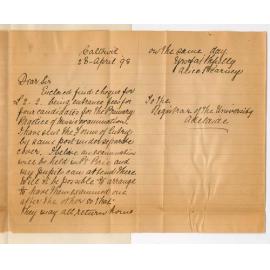 Caltowie
28 April 98
Dear Sir
Enclosed find cheque for
£2. 2. being entrance fees for
four candidates for the Primary
Practice of Music examination
I have sent the Forms of Entry
by same post under separate
cover. I believe an examination
will be held in Pt Pirie and
my pupils can attend there
Will it be possible to arrange
to have them examined one
after the other so that
they may all return home
on the same day
Yours faithfully
Kearney
To the
Registrar of the University
Adelaide